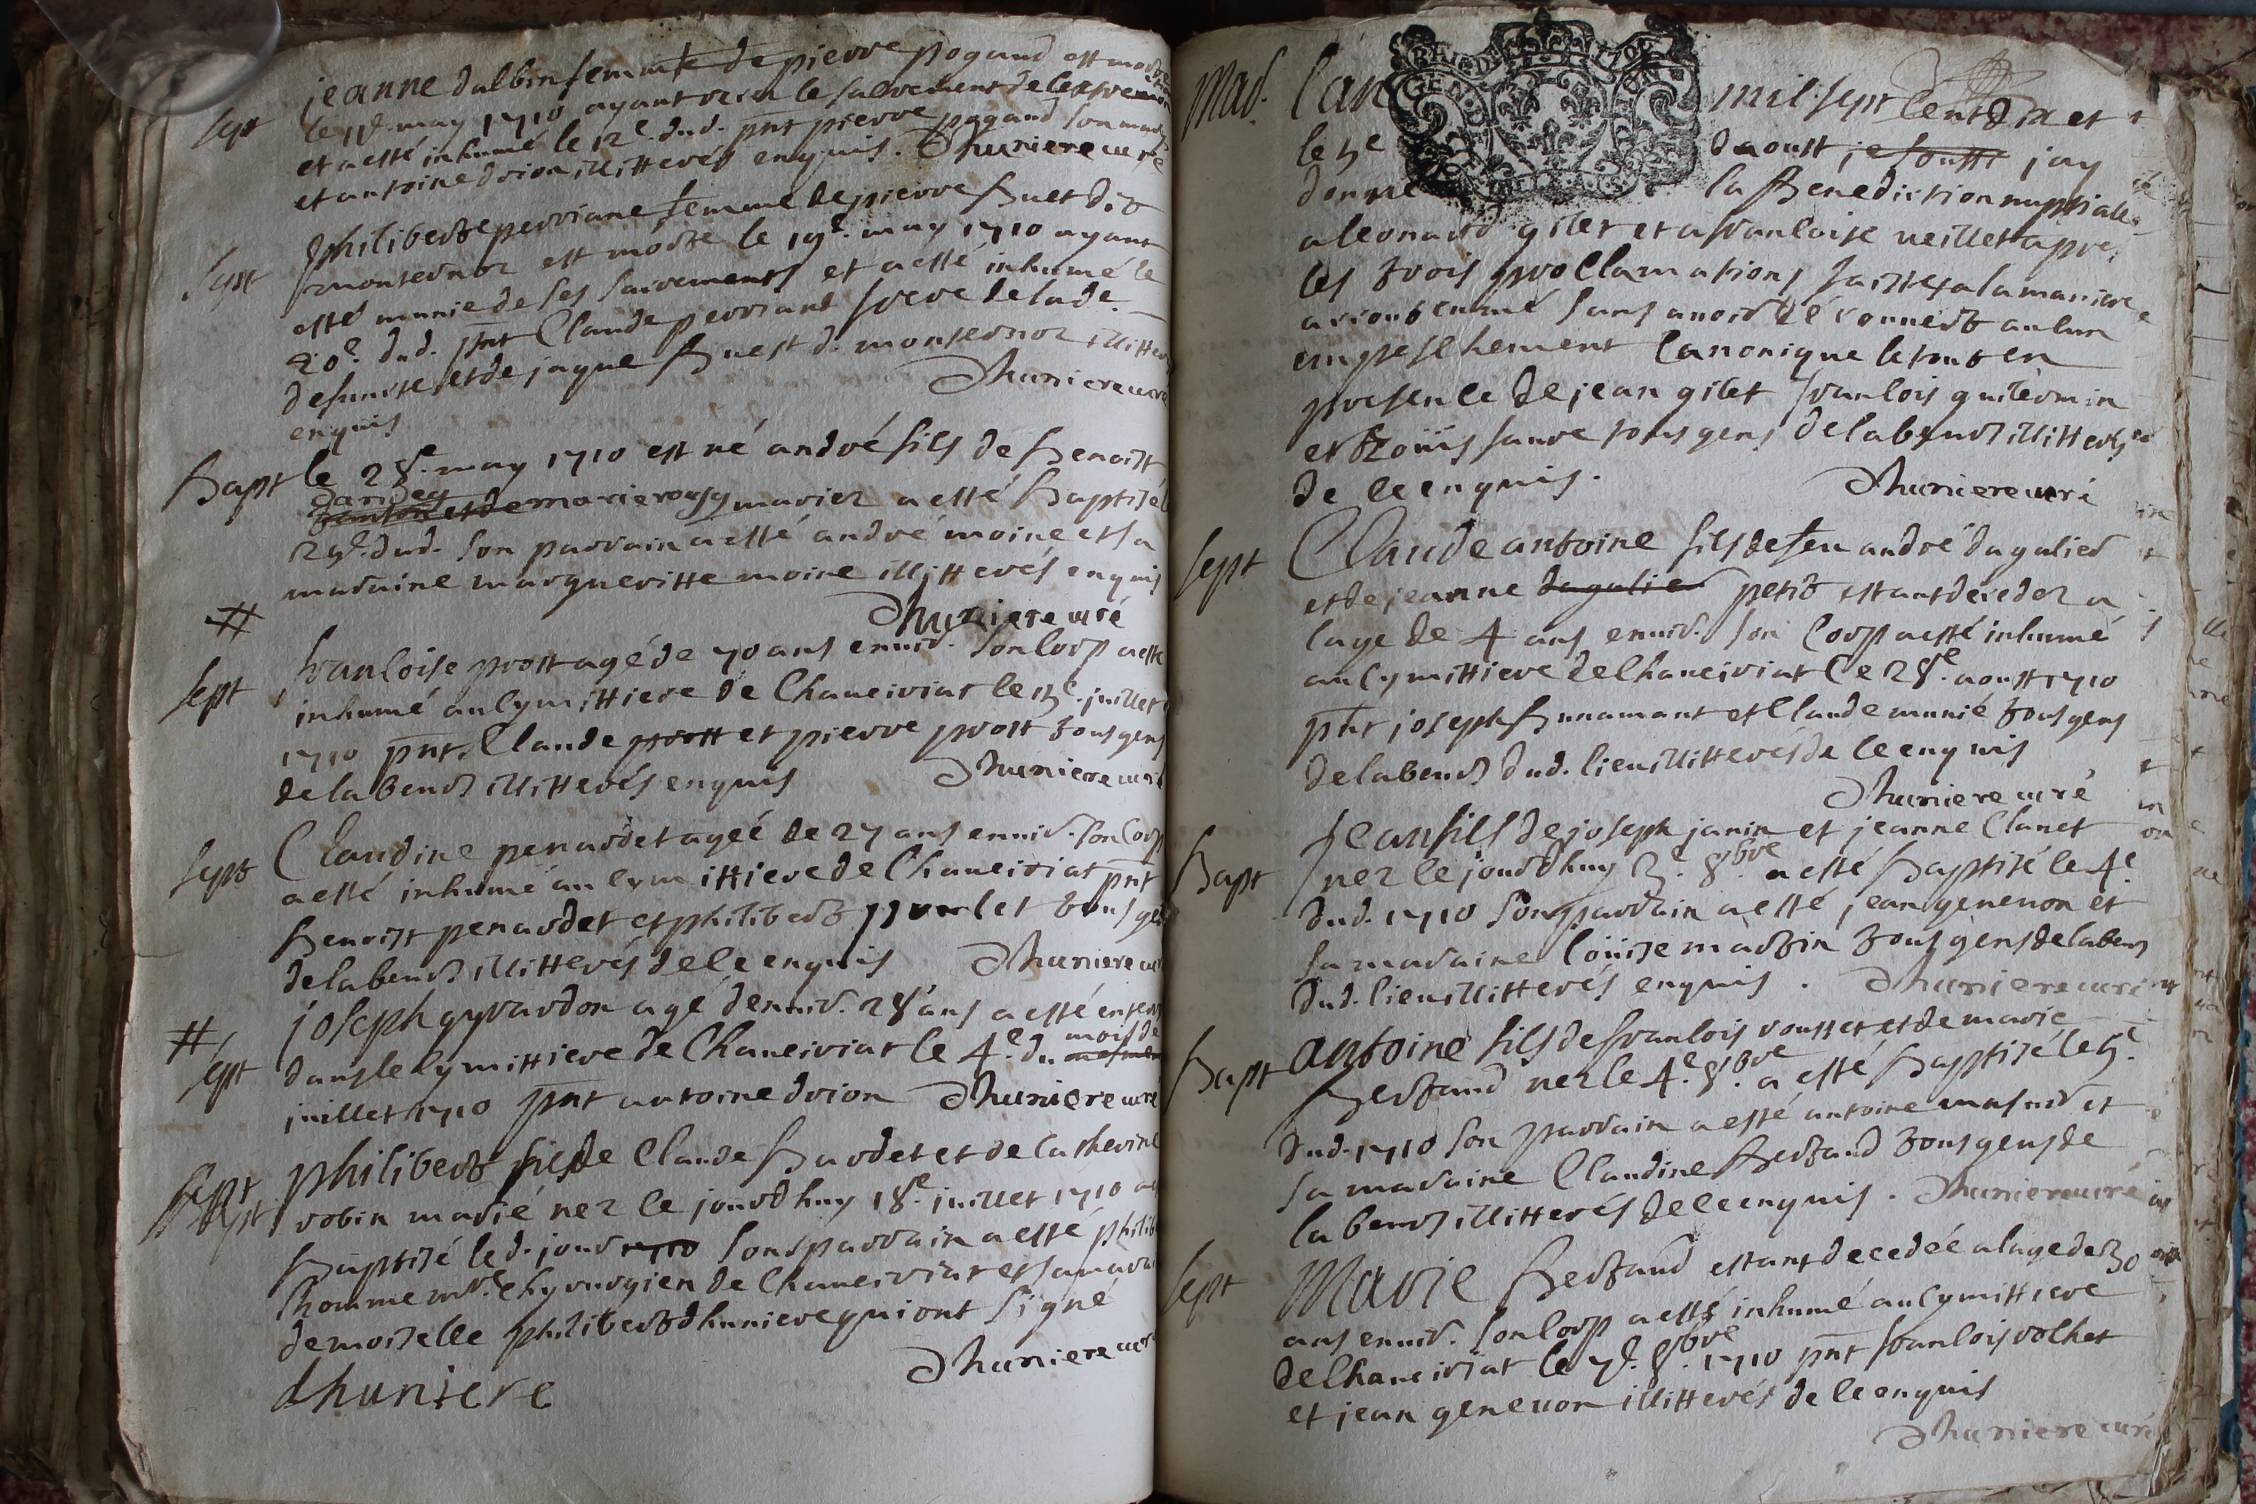 jeanne dalbin femme de pierre pogand est morte
sept le 11e. may 1710 ayant receu le sacrement de lextre
et a esté inhumé le 12e. dud. pnt pierre pogand son mary
et antoine drion illitterés enquis. Dhuniere curé
philiberte perriane femme de pierre Buet dit
sept monternoz est morte le 19e. may 1710 ayant
esté munie de ses sacrements et a esté inhumé le
20e. dud. pnt Claude perriane frere de lade.
defuncte et de jaque Buest d. monternoz illitter
enquis Dhuniere curé
Bapt le 28e. may 1710 est né andré fils de Benoist
et de marie rousy mariez a esté Baptisé l
29e. dud. son parrain a esté andré moine et sa
maraine margueritte moine illitterés enquis
# Dhuniere curé
sept francoise prost agé de 70 ans envir. son corp a esté
inhumé au cymittiere de Chaveiriat le 15e. juillet
1710 pnt. Claude prost et pierre prost tous gens
de labeur illitterés enquis Dhuniere curé
sept Claudine penardet ageé de 27 ans envir. son corp
a esté inhumé au cymittiere de Chaveiriat pnt
Benoist penardet et philibert tous gens
de labeur illitterés de ce enquis Dhuniere cur
joseph gyvardon agé denvir. 28 ans a esté enterr
# sept dans le cymittiere de Chaveiriat le 4e. du mois de
juillet 1710 pnt antoine drion Dhuniere curé
Bapt philibert fils de Claude Bardet et de Catherine
robin marié nez le jourdhuy 18e. juillet 1710 a
Baptisé led. jour 1710 son parrain a esté philib
lhomme mre. Chyrurgien de Chaveiriat et sa mara
demoiselle philibert dhuniere qui ont signé
dhuniere Dhuniere cur
Mar. Lan mil sept cent dix et
le 5e daoust je soust jay
donné la Benediction nuptiale
a leonard gilet et a francoise veillet apres
les trois proclamations faittes a la maniere
accoutenmé sans avoir decouvert aucun
empeschement Canonique le tout en
presence de jean gilet francois guilermin
et Loüis faure tous gens de labeur illitterés
de ce enquis. Dhuniere curé
sept Claude antoine fils de feu andré dagalier
et de jeanne dagalier petit estant decedez a
lage de 4 ans envir. son corp a esté inhumé
au cymittiere de Chaveiriat le 28e. aoust 1710
pnt joseph Bunamant et Claude munié tous gens
de labeur dud. lieu illitterés de ce enquis
Dhuniere curé
jean fils de joseph janin et jeanne Clanet
Bapt nez le jourdhuy 3e. 8bre a esté Baptisé le 4e.
dud. 1710 son parrain a esté jean genevon et
sa maraine loüise martin tous gens de labeur
dud. lieu illitterés enquis. Dhuniere curé
Bapt antoine fils de francois rousset et de marie
Bertand nez le 4e. 8bre. a esté Baptisé le 5e.
dud. 1710 son parrain a esté antoine et
sa maraine Claudine Bertand tous gens de
labeur illitterés de ce enquis. Dhuniere curé
sept Marie Bertand estant decedéé a lage de 30
ans envir. son corp a esté inhumé au cymittiere
de Chaveiriat le 7e. 8bre. 1710 pnt francois volhet
et jean genevon illitterés de ce enquis
Dhuniere curé